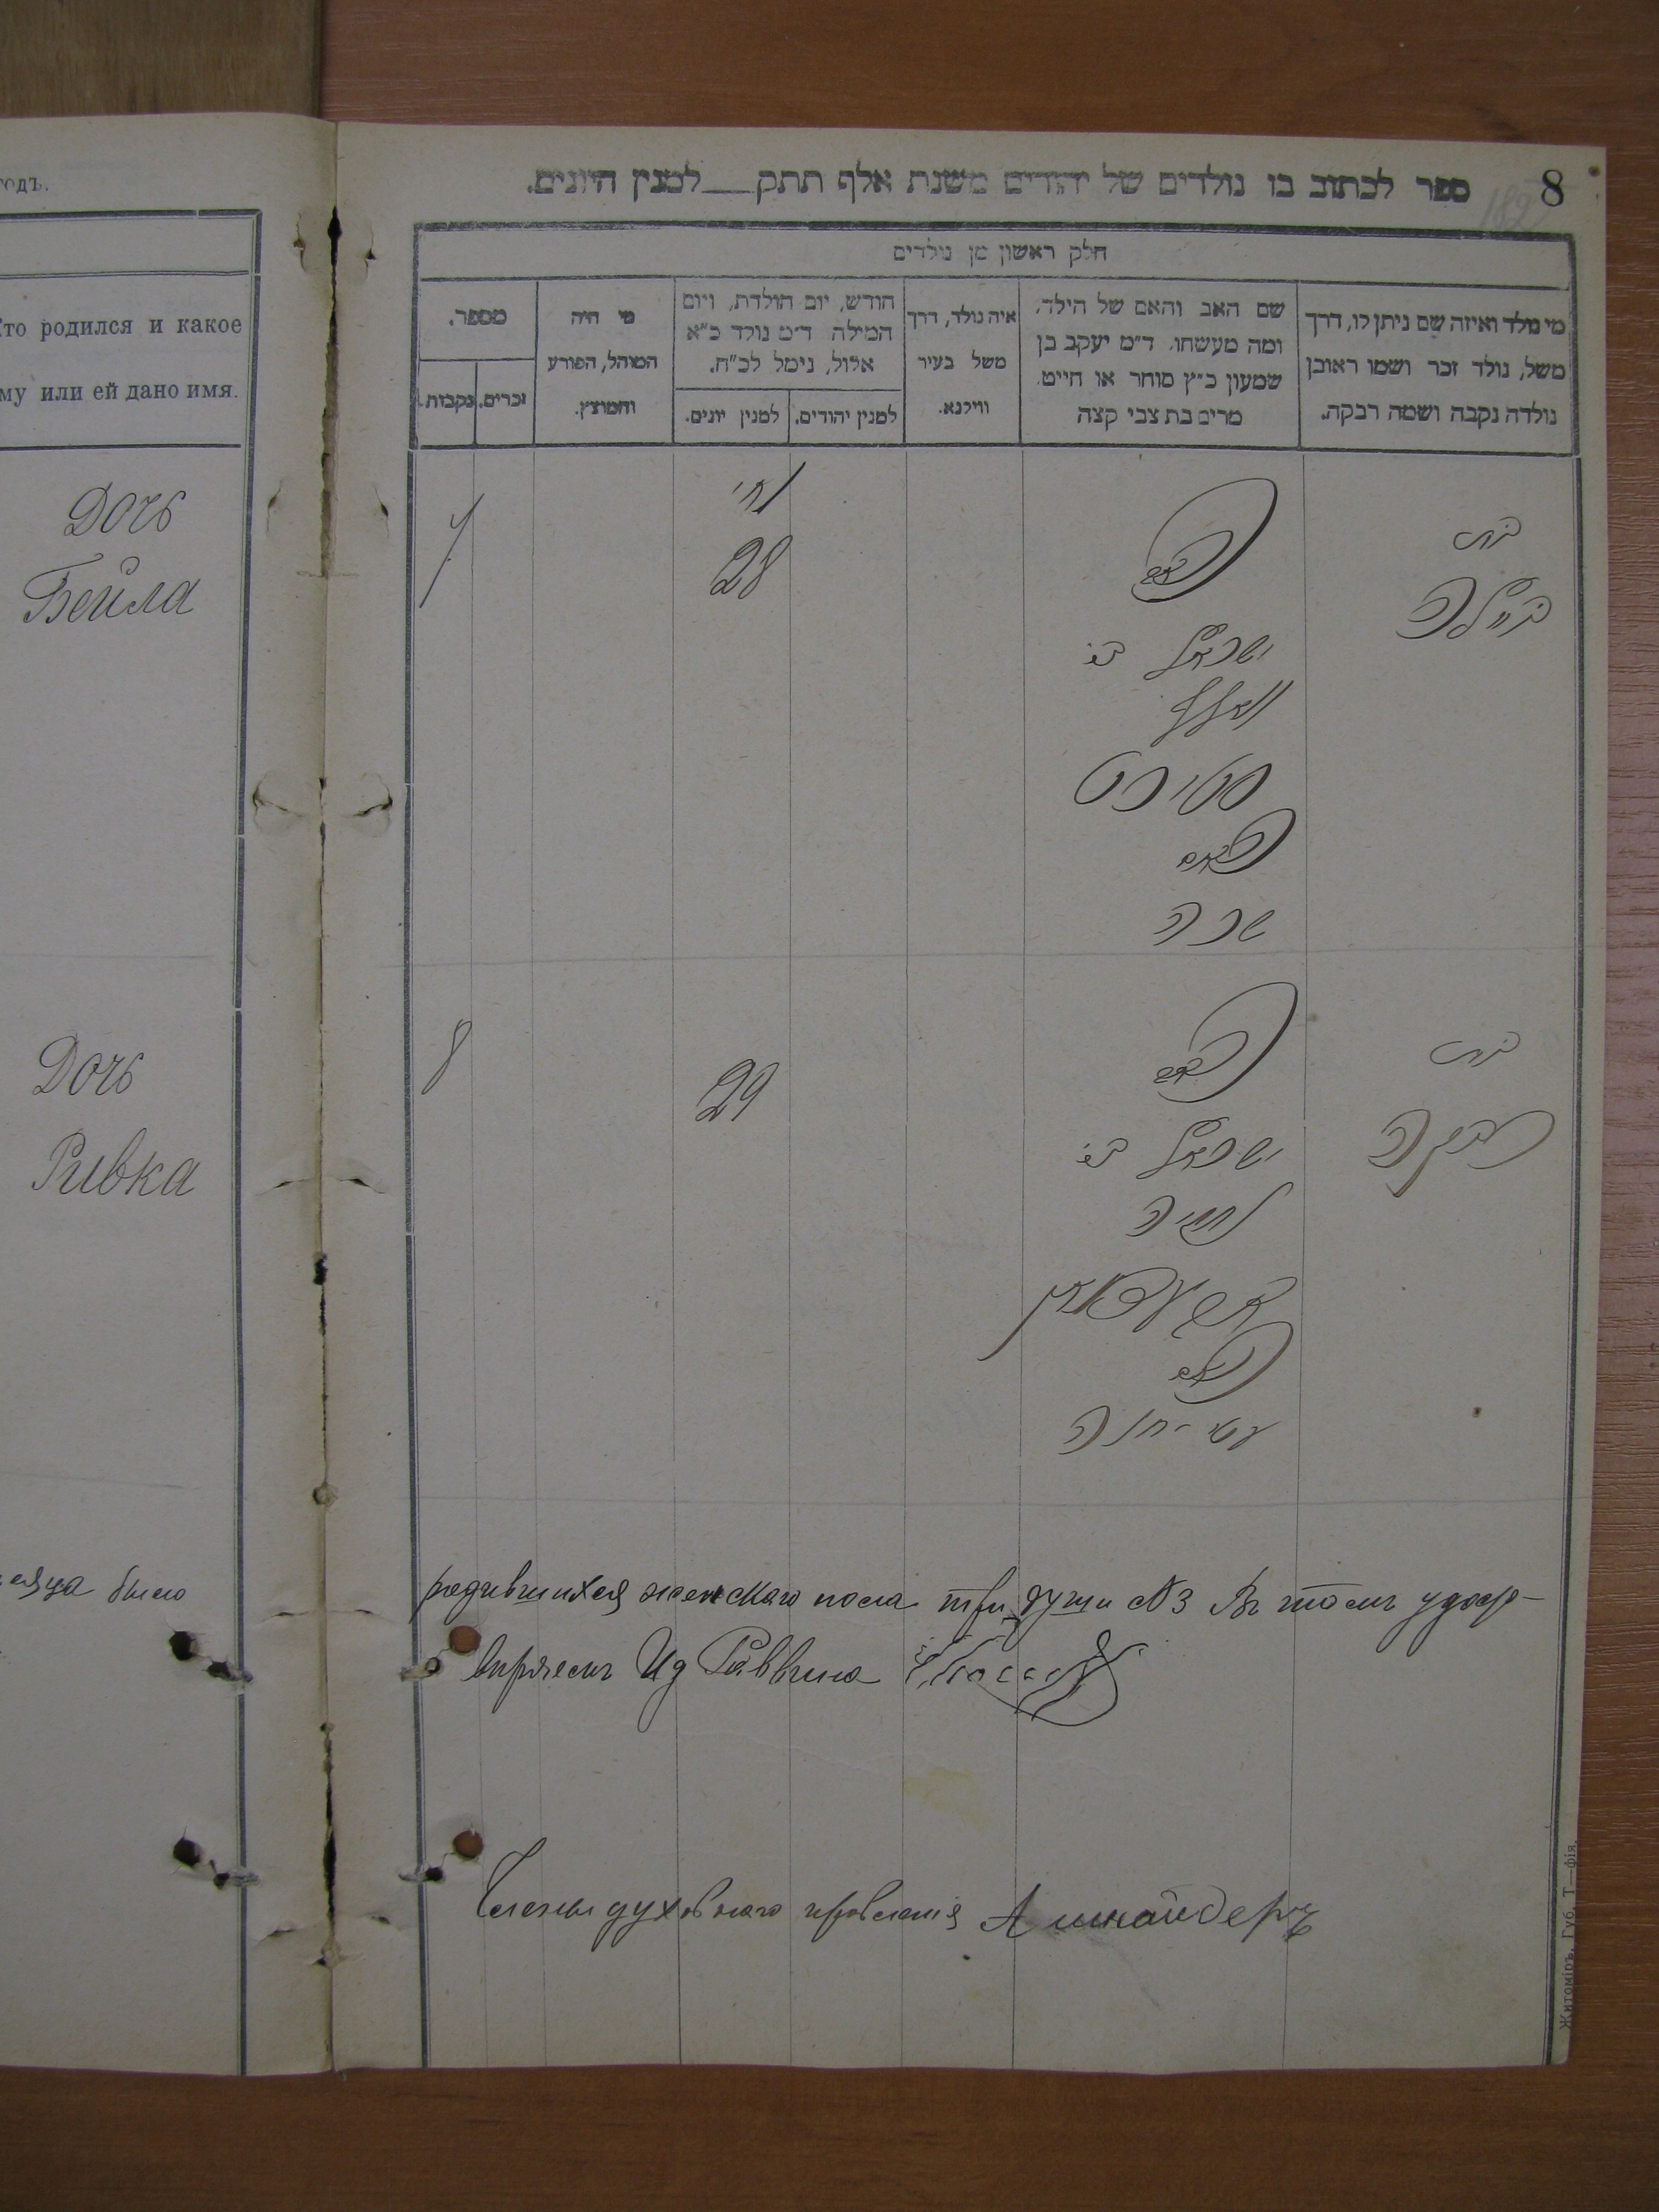 годъ.
Кто родился и какое
ему или ей дано имя.
Дочь
Бейла
Дочь
Ривка
было
8
ספר לכתוב בו נולדים של יהודים משנת אלף תתק__למנין היונים.
חלק ראשון מן נולדים
מי נולד ואיזה שם ניתן לו, דרך
משל, נולד זכר ושמו ראובן
נולדה נקבה ושמה רבקה.
שם האב והאם של הילד,
ומה מעשהו. ד״מ יעקב בן
שמעון כ״ץ סוחר או חייט
מרים בת צבי קצה
איה נולד, דרך
משל בעיר
ווילנא.
חודש, יום הולדת, ויום
המילה ד״מ נולד כ״א
אלול, נימל לכ״ח.
למנין יהודים.
למנין יונים.
מי היה
המוהל, הפורע
והמוצץ.
מספר.
זכרים.
נקבות.
בת
ביילה
האב
ישראל בן
האם
שרה
מאי
28
7
בת
רבקה
האב
ישראל בן
האם
29
8
родившихся женскаго пола три души №3 Въ томъ удосто-
вѣряемъ Ид Раввина
Члены духовнаго правленія А шнайдеръ
Житоміръ, Губ. Т—фія.